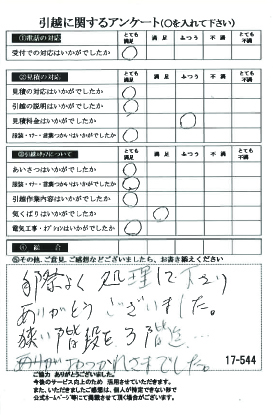 引越に関するアンケート(○を入れて下さい)
①電話の対応 とても満足 満足 ふつう 不満 とても不満
受付での対応はいかがでしたか ○
②見積の対応 とても満足 満足 ふつう 不満 とても不満
見積の対応はいかがでしたか ○
引越の説明はいかがでしたか ○
見積料金はいかがでしたか ○
服装・マナー・言葉づかいはいかがでしたか ○
③引越スタッフについて とても満足 満足 ふつう 不満 とても不満
あいさつはいかがでしたか ○
服装・マナー・言葉づかいはいかがでしたか ○
引越作業内容はいかがでしたか ○
気くばりはいかがでしたか ○
電気工事・オプションはいかがでしたか ○
④総合 ○
⑤その他、ご意見、ご感想などございましたら、お書き添えください
手際よく処理して下さり
ありがとうございました。
狭い階段を3階迄…
ありがとうおつかれさまでした。
17-544
ご協力 ありがとうございました。
今後のサービス向上のため 活用させていただきます。
また、いただきましたご感想は、個人が特定できない形で
公式ホームページ等にて掲載させて頂く場合がございます。